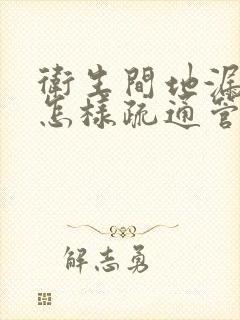 衛生間地漏
怎樣疏通管
解志勇